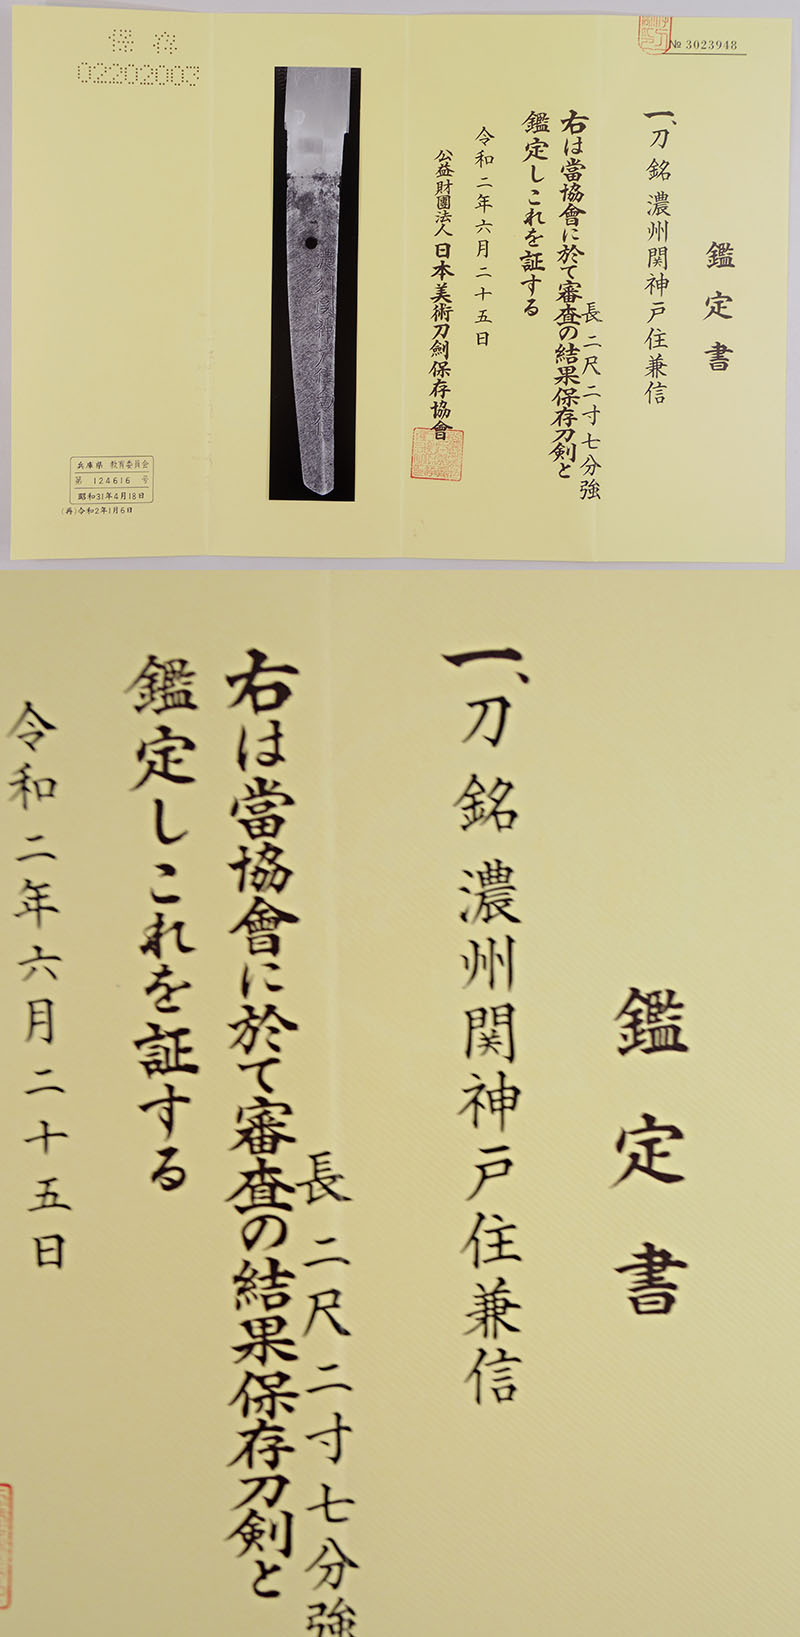 № 3023948
鑑定書
一、刀 銘 濃州関神戸住兼信
長 二尺二寸七分強
右は當協會に於て審査の結果保存刀剣と
鑑定しこれを証する
令和二年六月二十五日
公益財團法人 日本美術刀劍保存協會
保存
02202003
兵庫県 教育委員会
第 124616 号
昭和31年4月18日
(再)令和2年1月6日
鑑定書
一、刀 銘 濃州関神戸住兼信
長 二尺二寸七分強
右は當協會に於て審査の結果保存刀剣と
鑑定しこれを証する
令和二年六月二十五日